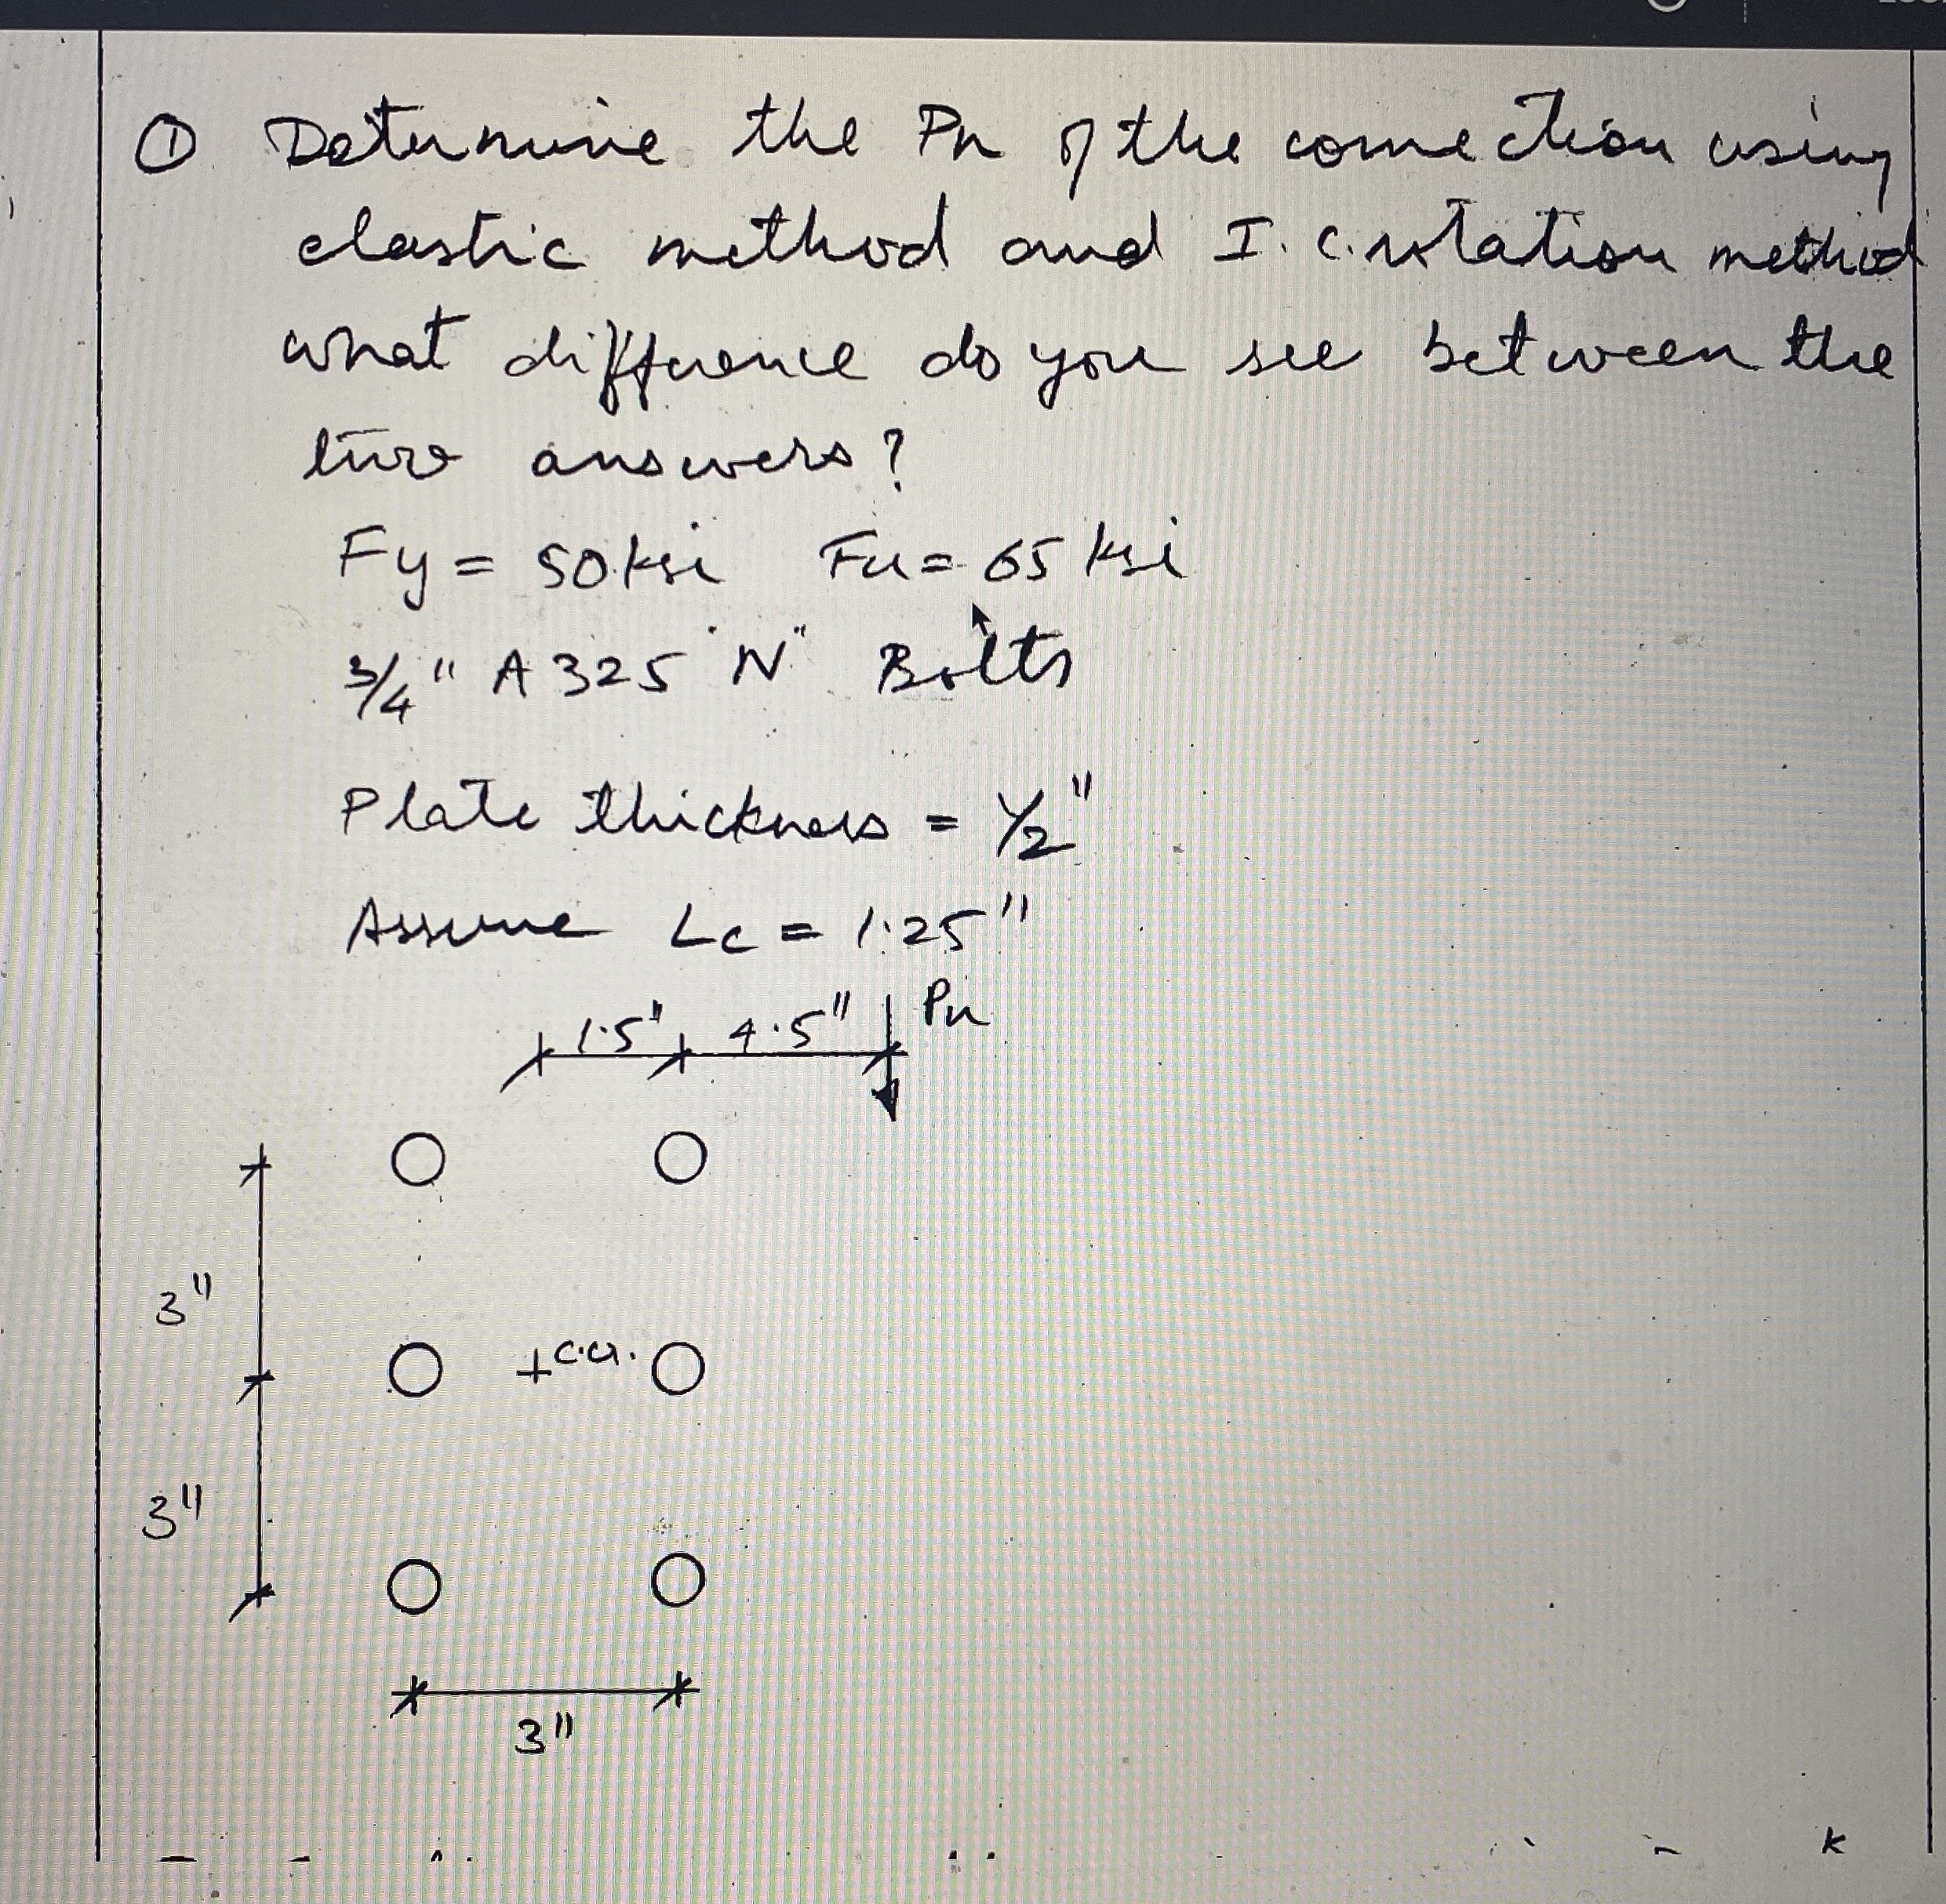 ① Determine the Pn of the connection using
elastic method and I.C. rotation method
what difference do you see between the
two answers?
Fy = 50 ksi Fu = 65 ksi
3/4" A 325 "N" Bolts
Plate thickness = 1/2"
Assume Lc = 1.25"
1.5" 4.5" Pn
3"
+ C.G.
3"
3"